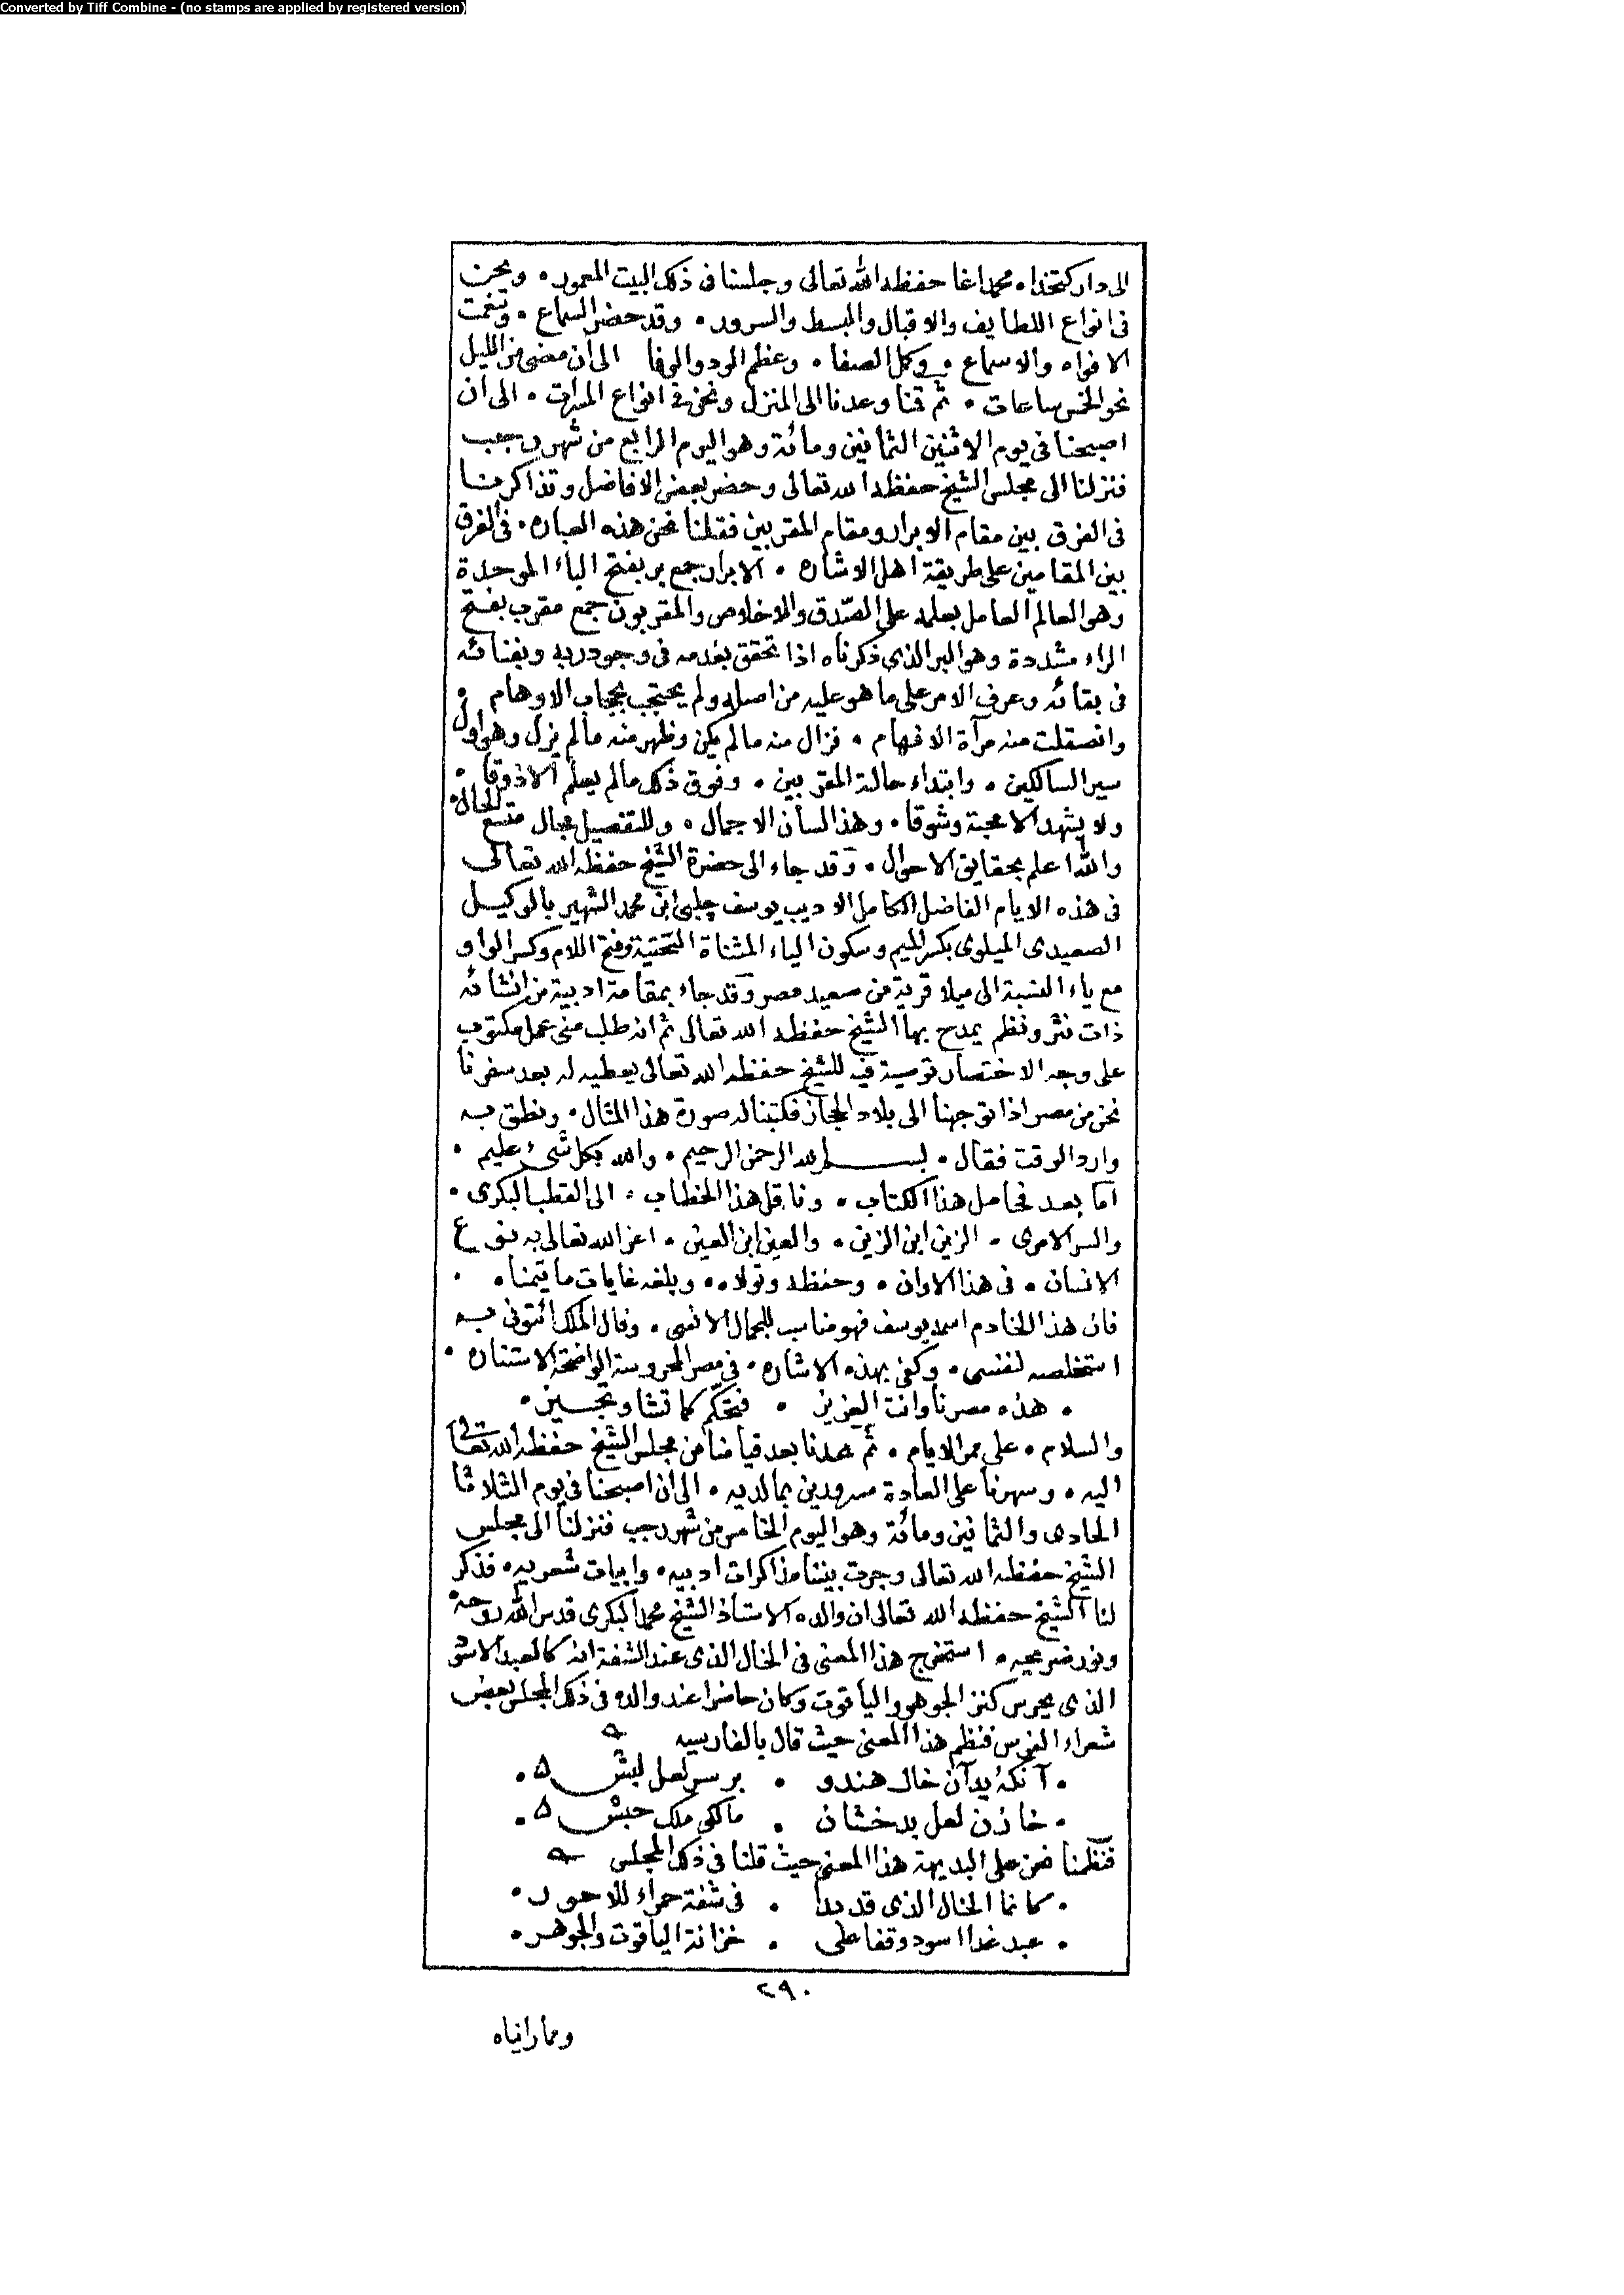 Converted by Tiff Combine - (no stamps are applied by registered version)
الى دار كتخذاه محمد اغا حفظه الله تعالى وجلسنا فى ذلك البيت المعمور • ونحن
فى انواع اللطايف والاقبال والبسط والسرور • وقد حضر السماع • وتنغمت
الافواه والاسماع • وكمل الصفا • وعظم الود والوفا الى ان مضى من الليل
نحو الخمس ساعات • ثم قمنا وعدنا الى المنزل ونحن فى انواع المسرات • الى ان
اصبحنا فى يوم الاثنين الثمانين ومائة وهو اليوم الرابع من شهر رجب
فنزلنا الى مجلس الشيخ حفظه الله تعالى وحضر بعض الافاضل وتذاكرنا
فى الفرق بين مقام الابرار ومقام المقربين فقلنا نحن هذه العباره • فى الفرق
بين المقامين على طريقة اهل الاشاره • الابرار جمع بر بفتح الباء الموحدة
وهو العالم العامل بعلمه على الصدق والاخلاص والمقربون جمع مقرب بفتح
الراء مشددة وهو البر الذى ذكرناه اذا تحقق بعدمه فى وجود ربه وبفنائه
فى بقائه وعرف الامر على ما هو عليه من اصله ولم يحتجب بحجاب الاوهام •
وانصقلت منه مرآة الافهام • فزال منه مالم يكن وظهر منه مالم يزل وهو اول
سير السالكين • وابتداء حالة المقربين • وفوق ذلك مالم يعلم الا ذوقا •
ولا يشهد الا محبة وشوقا • وهذا لسان الاجمال • وللتفصيل مجال متسع الحال •
والله اعلم بحقايق الاحوال • وقد جاء الى حضرة الشيخ حفظه الله تعالى
فى هذه الايام الفاضل الكامل الاديب يوسف چلبى ابن محمد الشهير بالوكيل
الصعيدى الميلوى بكسر الميم وسكون الياء المثناة التحتية وفتح اللام وكسر الواو
مع ياء النسبة الى ميلا قرية من صعيد مصر وقد جاء بمقامة ادبية من انشائه
ذات نثر ونظم يمدح بها الشيخ حفظه الله تعالى ثم انه طلب منى عمل مكتوب
على وجه الاختصار توصية فيه للشيخ حفظه الله تعالى يعطيه له بعد سفرنا
نحن من مصر اذا توجهنا الى بلاد الحجاز فكتبنا له صورة هذا المثال • ونطق به
وارد الوقت فقال • بسم الله الرحمن الرحيم • والله بكل شىء عليم •
اما بعد فحامل هذا الكتاب • وناقل هذا الخطاب • الى القطب البكرى •
والسر الامرى • الزين ابن الزين • والعين ابن العين • اعز الله تعالى به نوع
الانسان • فى هذا الاوان • وحفظه وتولاه • وبلغه غايات ما يتمناه •
فان هذا الخادم اسمه يوسف فهو مناسب للجمال الانسى • وقال الملك ائتونى به
استخلصه لنفسى • وكفى بهذه الاشاره • فى مصر المحروسة الواضحة الاستناره •
• هذه مصرنا وانت العزيز • فتحكم كما تشا وتحسين •
والسلام • على ممر الايام • ثم عمدنا بعد قيامنا من مجلس الشيخ حفظه الله تعالى
اليه • وسهرنا على العادة مسرورين بما لديه • الى ان اصبحنا فى يوم الثلاثا
الحادى والثمانين ومائة وهو اليوم الخامس من شهر رجب فنزلنا الى مجلس
الشيخ حفظه الله تعالى وجرت بيننا مذاكرات ادبيه • وابيات شعريه • فذكر
لنا الشيخ حفظه الله تعالى ان والده الاستاذ الشيخ محمد البكرى قدس الله روحه •
ونور ضريحه • استخرج هذا المعنى فى الخال الذى عند الشفة انه كالعبد الاسود
الذى يحرس كنز الجوهر والياقوت وكان حاضرا عند والده فى ذلك المجلس بعض
شعراء الفرس فنظم هذا المعنى حيث قال بالفارسيه
• آنكه بدآن خال هندو • بر سر لعل لبش •
• خازن لعل بدخشان • مالكى ملك حبش •
فنظمنا نحن على البديهة هذا المعنى حيث قلنا فى ذلك المجلس
• كانما الخال الذى قد بدا • فى شفة حمراء للاحور •
• عبد غدا اسود وقفا على • خزانة الياقوت والجوهر •
٢٩٠
ومما رايناه